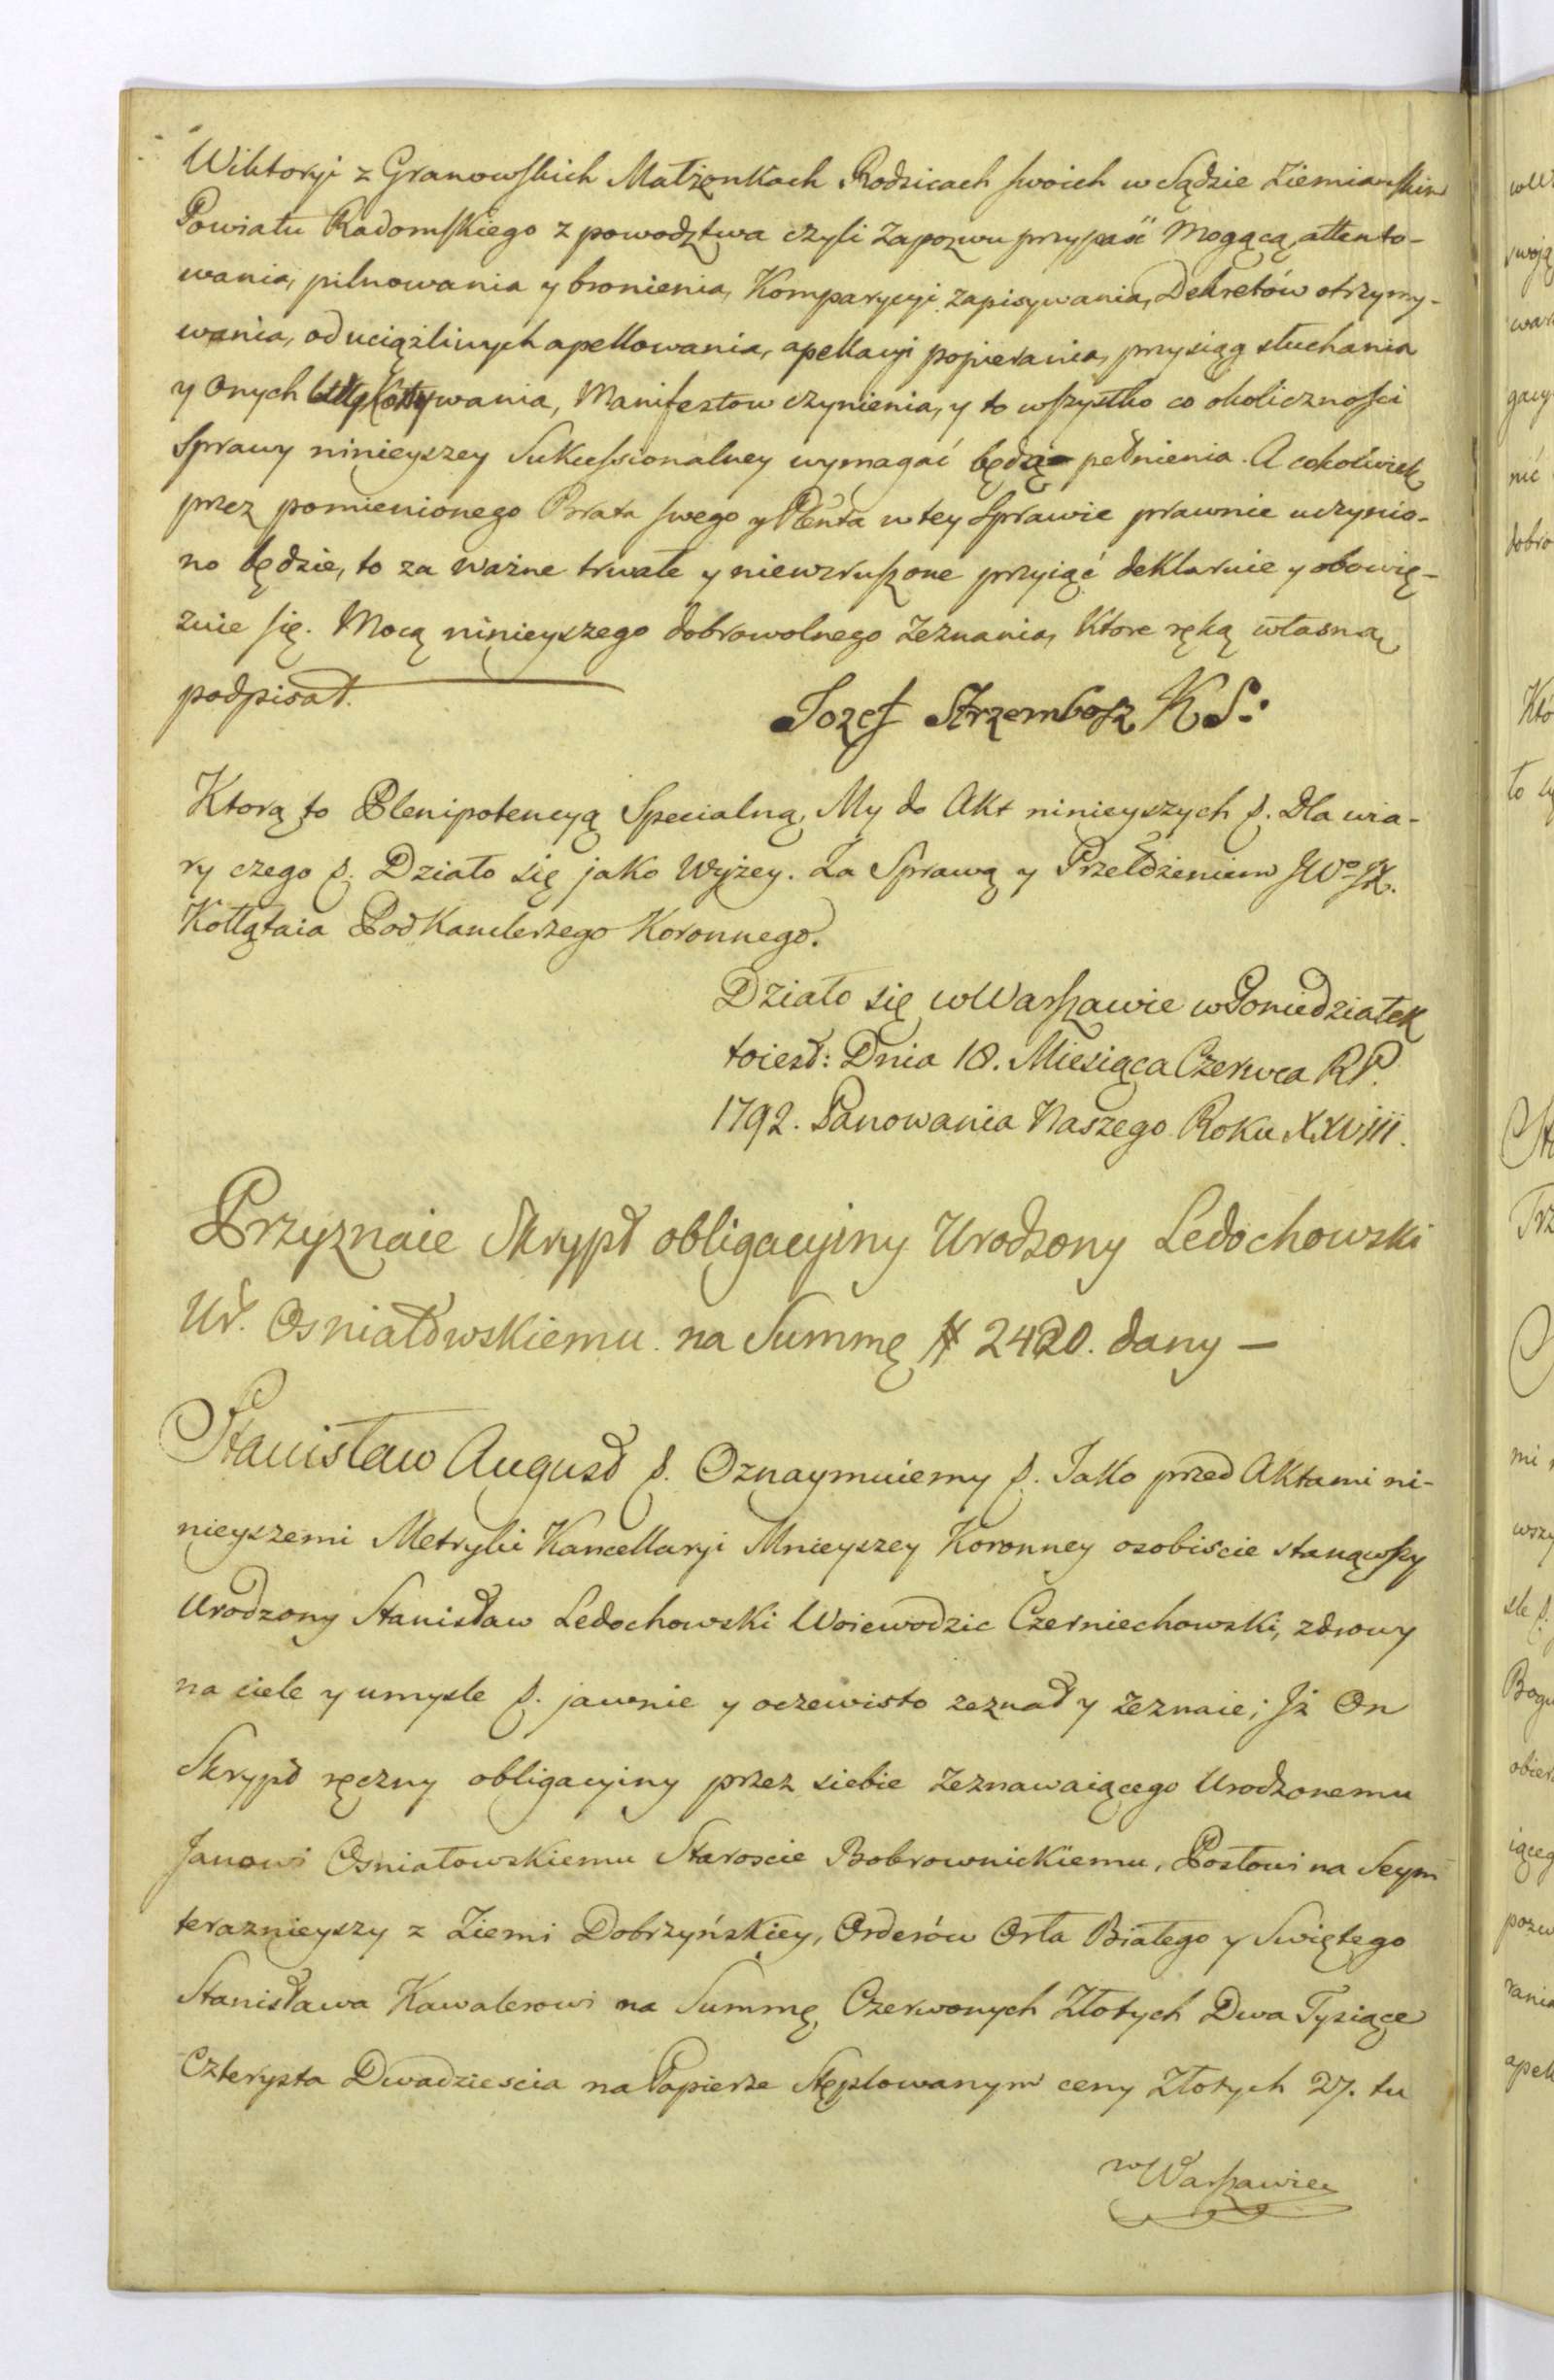 Wiktoryi z Granowskich Małżonkach Rodzicach swoich w Sądzie Ziemiańskim
Powiatu Radomskiego z powodztwa czyli Zapozwu przypaść Mogącą attento-
wania, pilnowania y bronienia, Komparycyi zapisywania, Dekretów otrzymy-
wania, od uciążliwych apellowania, apellacyi popierania, przysiąg słuchania
y Onych wania, Manifestow czynienia, y to wszystko co okoliczności
Sprawy ninieyszey Sukcessionalney wymagać będą pełnienia. A cokolwiek
przez pomienionego Brata swego y Plenta w tey Sprawie prawnie uczynio-
no będzie, to za ważne trwałe y niewzruszone przyiąć deklaruie y obowię-
zuie się. Mocą ninieyszego dobrowolnego Zeznania, Ktore ręką własną
podpisał.
Jozef Strzembosz KS:
Ktorą to Plenipotencyą Specialną, My do Akt ninieyszych p. Dla wia-
ry czego p. Działo się jako Wyżey. Za Sprawą y Przełożeniem JWo JX.
Kołłątaia PodKanclerzego Koronnego.
Działo się w Warszawie w Poniedziałek
toiest: Dnia 18. Miesiąca Czerwca RP.
1792. Panowania Naszego Roku XXVIII.
Przyznaie Skrypt obligacyiny Urodzony Ledochowski
Ur. Osniałowskiemu na Summę # 2420. dany —
Stanisław August p. Oznaymuiemy p. Jako przed Aktami ni-
nieyszemi Metryki Kancellaryi Mnieyszey Koronney osobiscie stanąwszy
Urodzony Stanisław Ledochowski Woiewodzic Czerniechowski, zdrowy
na ciele y umysle p. jawnie y oczewisto zeznał y zeznaie; Jż On
Skrypt ręczny obligacyiny przez siebie Zeznawaiącego Urodzonemu
Janowi Osniałowskiemu Staroscie Bobrownickiemu, Posłowi na Seym
teraznieyszy z Ziemi Dobrzyńskiey, Orderów Orła Białego y Swiętego
Stanisława Kawalerowi na Summę Czerwonych Złotych Dwa Tysiące
Czterysta Dwadziescia na Papierze Stęplowanym ceny Złotych 27. tu
w Warszawie